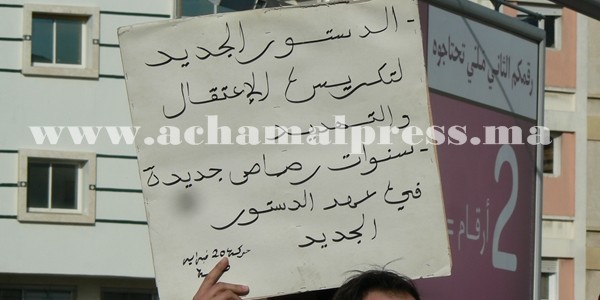 - الدستور الجديد
لتكريس الإعتقال
والتهديد
- لسنوات رصاص جديدة
في عهد الدستور
الجديد
حركة 20 فبراير
رقمكم الثاني ملي تحتاجوه
2
أرقام =
www.achamalpress.ma